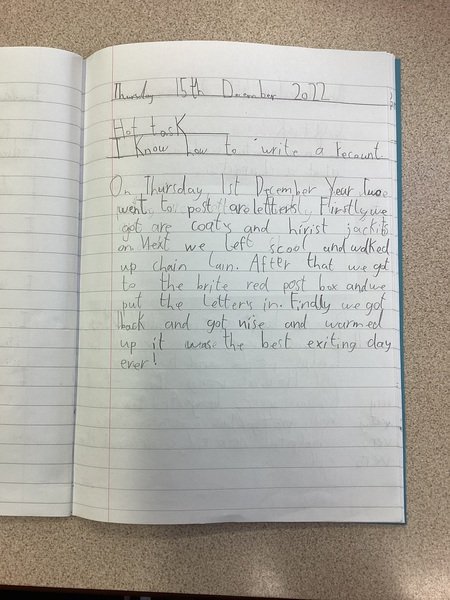 Thursday 15th December 2022
Hot task
I Know how to write a recount.
On Thursday 1st December Year Two
went to post are letters. Firstly we
got are coats and hirist jackits
on. Next we left scool and walked
up chain lain. After that we got
to the brite red post box and we
put the letters in. Findly we got
back and got nise and warmed
up it was the best exiting day
ever!